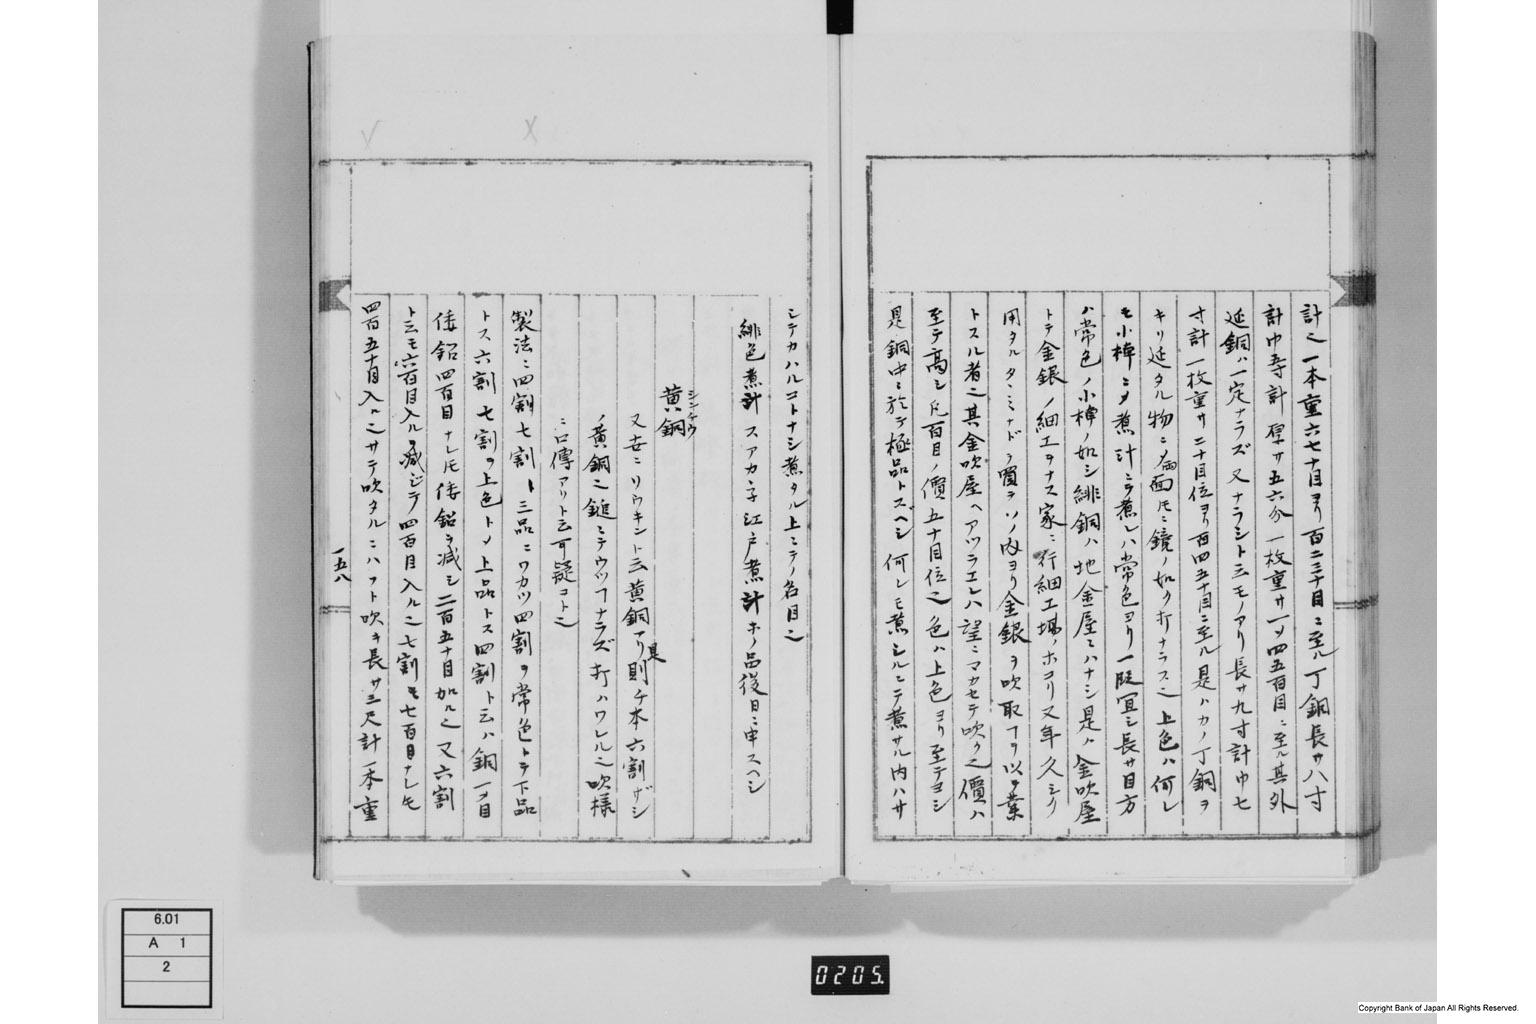 計之一本重六七十目ヨリ百二三十目ニ至ル丁銅長サ八寸
計巾壱寸計厚サ五六分一枚重サ一〆四五百目ニ至ル其外
延銅ハ一定ナラズ又ナラシト云モノアリ長サ九寸計巾七
寸計一枚重サ二十目位ヨリ百四五十目ニ至ル是ハカノ丁銅ヲ
キリ延タル物ニ〆両面モニ鏡ノ如ク打ナラス之上色ハ何レ
モ小棹ニ〆煮汁ニテ煮レハ常色ヨリ一段宜シ長サ目方
ハ常色ノ小棹ノ如シ緋銅ハ地金屋ニハナシ是ハ金吹屋
トテ金銀ノ細工ヲナス家ニ行細工場ノホコリ又年久シク
用タルタヽミナドヲ買テソノ内ヨリ金銀ヲ吹取ヿヲ以テ業
トスル者之其金吹屋ヘアツラエレハ望ニマカセテ吹ク之價ハ
至テ高シ凡百目ノ價五十目位之色ハ上色ヨリ至テヨシ
是銅中ニ於テ極品トスベシ何レモ煮シルニテ煮サル内ハサ
シテカハルコトナシ煮タル上ニテノ名目之
緋色煮計 スアカ子 江戸煮計ホノ品後日ニ申スヘシ
黄銅 シンチウ
又世ニリウキント云黄銅アリ是則チ本六割ザシ
ノ黄銅之鎚ミテウツヿナラズ打ハワレル之吹様
ニ口傳アリト云可疑コト之
製法ニ四割七割ト三品ニワカツ四割ヲ常色トテ下品
トス六割七割ヲ上色ト〆上品トス四割ト云ハ銅一〆目
倭鉛四百目ナレトモ倭鉛ヲ減シ二百五十目加ル之又六割
ト云モ六百目入ルヲ減ジテ四百目入ル之七割モ七百目ナレトモ
四百五十目入ル之サテ吹タルニハフト吹キ長サ三尺計一本重
一五八
6.01
A 1
2
0205.
Copyright Bank of Japan All Rights Reserved.